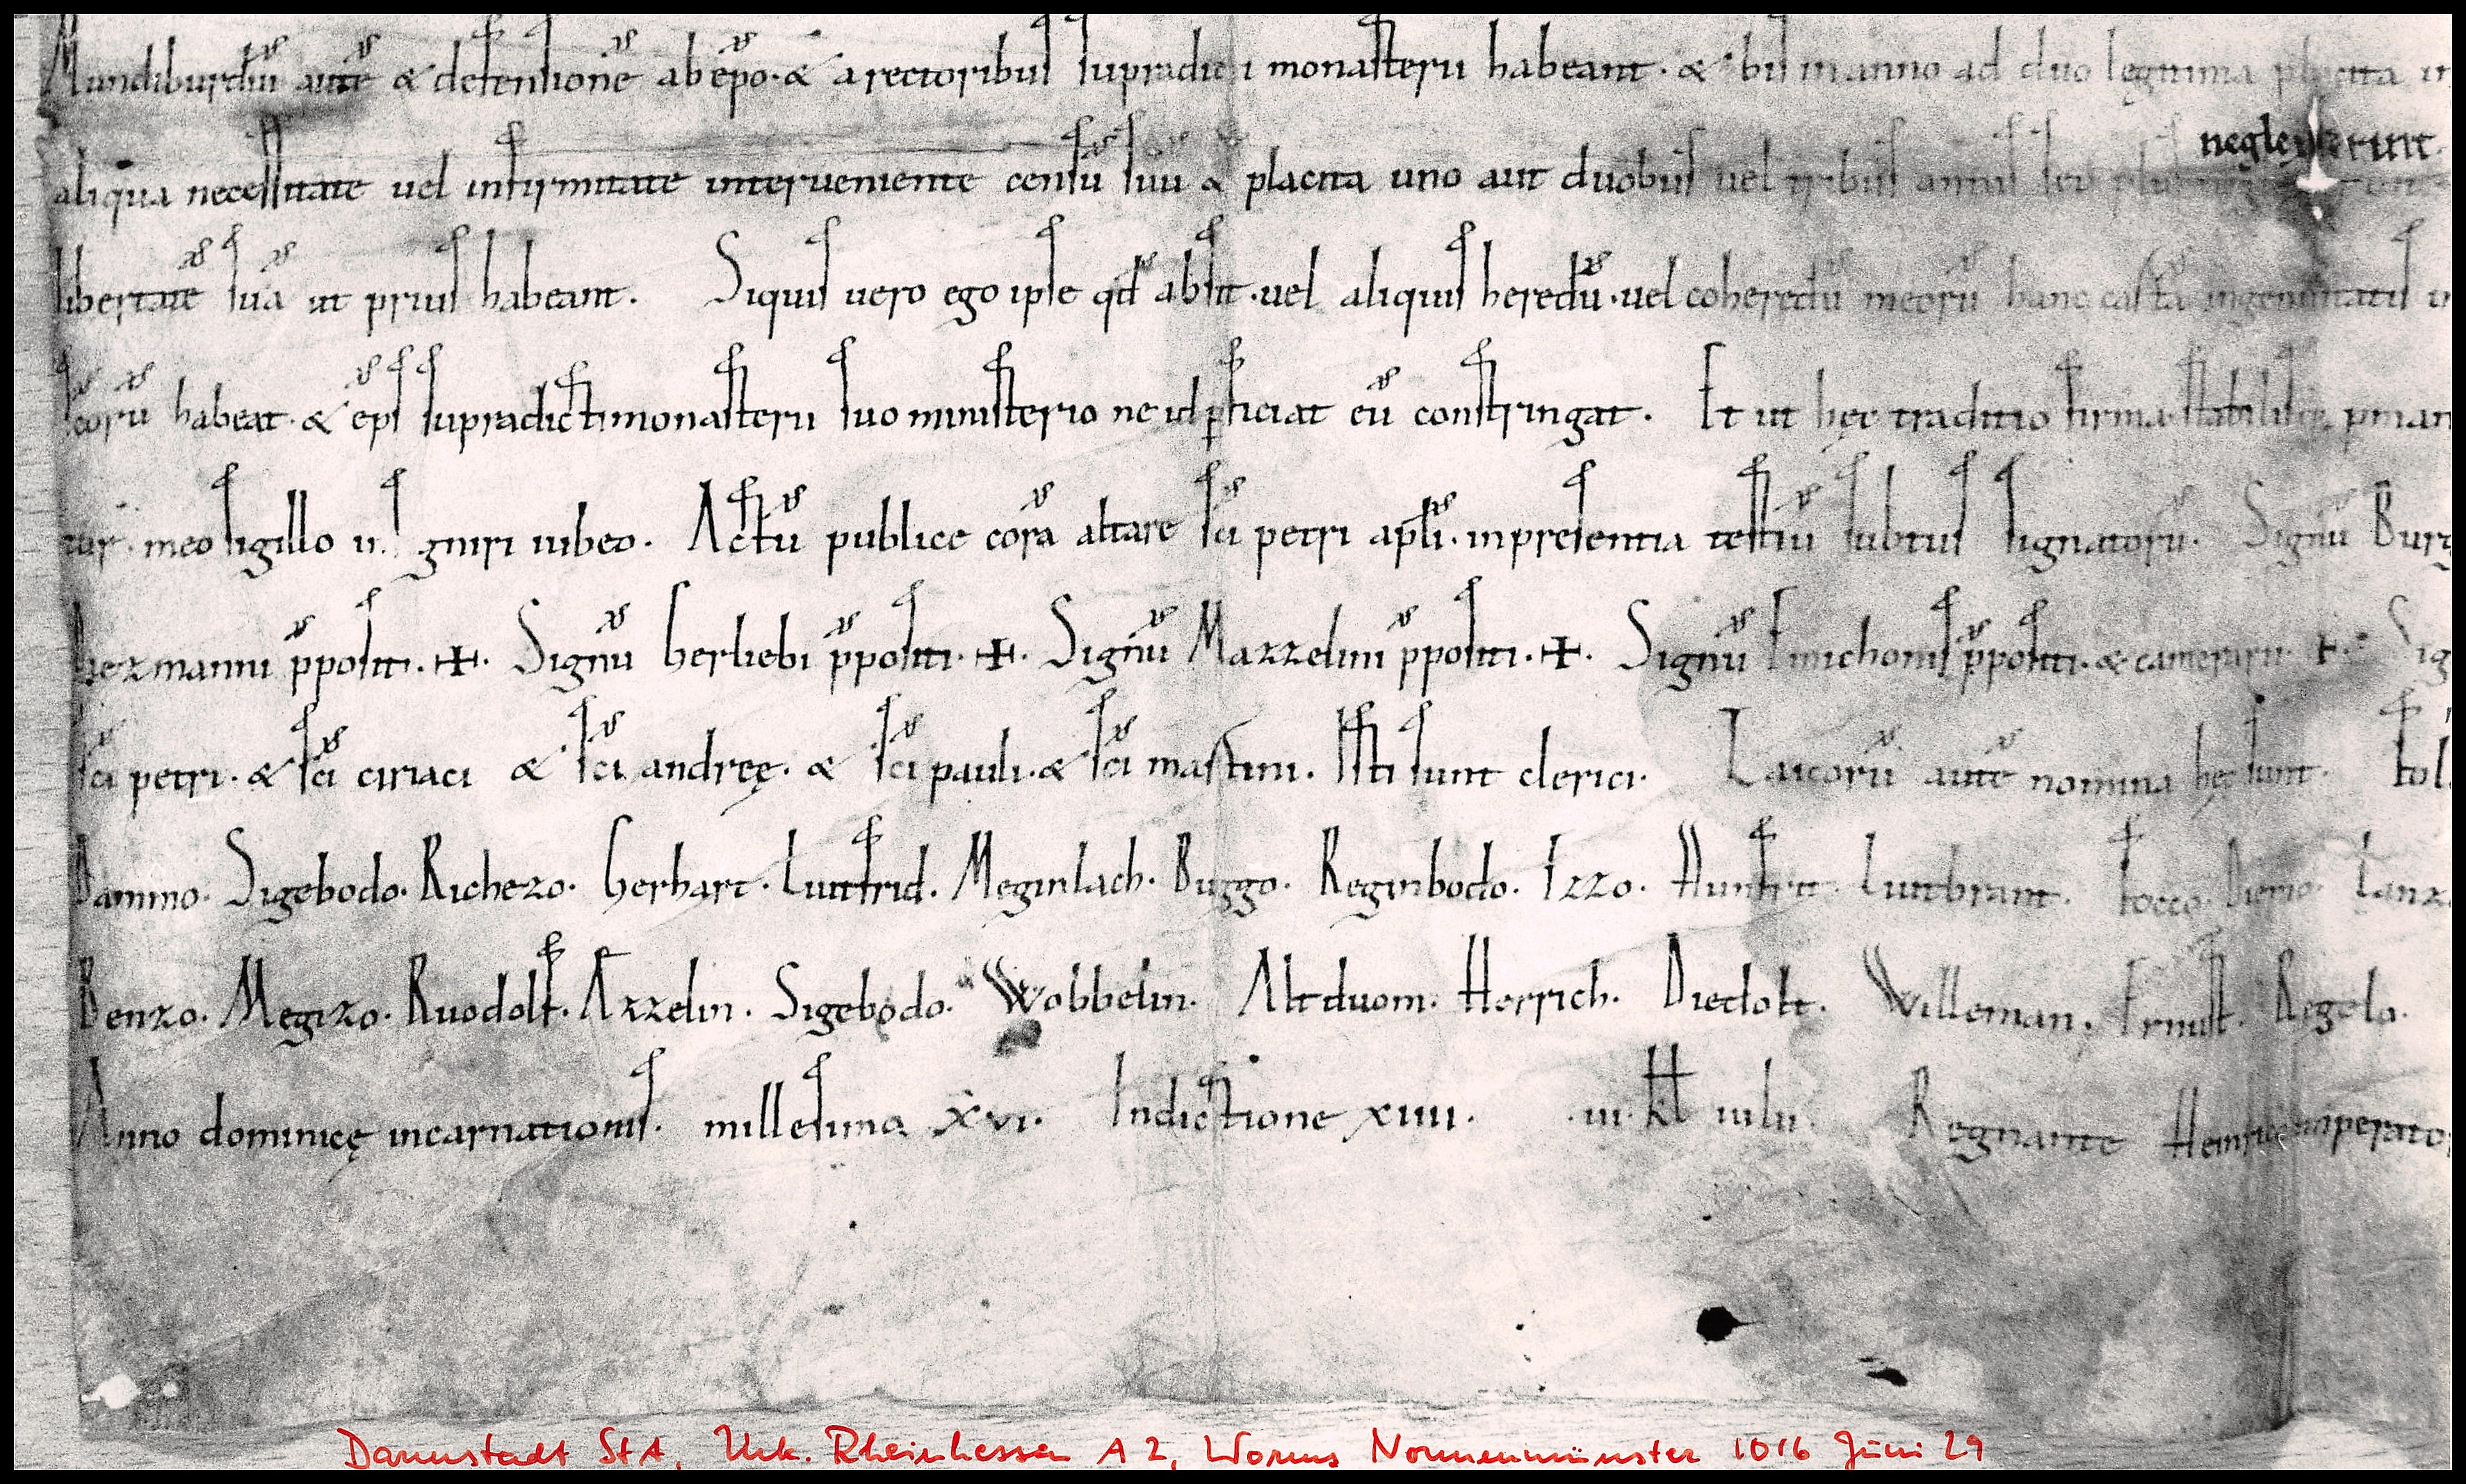 Mundiburdiū autē & defensionē ab ep̄o. & a rectoribus supradicti monasterii habeant. & bis in anno ad duo legitima placita
neglexerint.
aliqua necessitate vel infirmitate interveniente censū suū & placita uno aut duobus vel tribus annis seu
libertatē suā ut prius habeant. Siquis vero ego ipse qđ absit. vel aliquis heredū. vel coheredū meorū hanc cartā ingenuitatis
habeat. & ep̄s supradicti monasterii suo ministerio ne id ꝑficiat eū constringat. Et ut hęc traditio firma stabilisque
meo sigillo insigniri iubeo. Actū publice corā altare s̄ci petri ap̄li. in presentia testiū subtus signatorū. Signū Burg
Hezmanni p̄positi. ✠. Signū Herliebi p̄positi. ✠. Signū Mazzelini p̄positi. ✠. Signū Emichonis p̄positi. & camerarii. ✠. Sig
s̄ci petri. & s̄ci ciriaci & s̄ci andreę. & s̄ci pauli. & s̄ci martini. Isti sunt clerici. Laicorū autē nomina hęc sunt. Fol
Dammo. Sigebodo. Richezo. Gerhart. Liutfrid. Meginlach. Buggo. Reginbodo. Izzo. Hunfrit. Liutbrant. Focco. Lanz
Benzo. Megizo. Ruodolf. Azzelin. Sigebodo. Wobbelin. Altduom. Herrich. Diedolt. Willeman. Ernust. Regelo.
Anno dominicę incarnationis. millesima xvi. Indictione xiiii. .iii. kł iulii. Regnante Heinrico imperato
Darmstadt StA, Urk. Rheinhessen A 2, Worms Nonnenmünster 1016 Juni 29